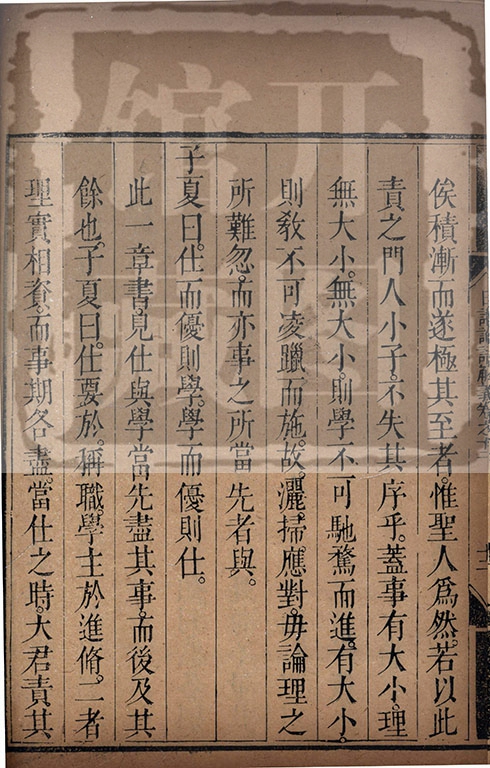 俟積漸而遂極其至者。惟聖人爲然。若以此
責之門人小子。不失其序乎。蓋事有大小。理
無大小。無大小。則學不可馳騖而進。有大小。
則敎不可凌躐而施。故。灑掃應對。毋論理之
所難忽。而亦事之所當先者與。
子夏曰。仕而優則學。學而優則仕。
此一章書。見仕與學當先盡其事。而後及其
餘也。子夏曰。仕要於。稱職。學主於進脩。二者
理實相資。而事期各盡。當仕之時。大君責其